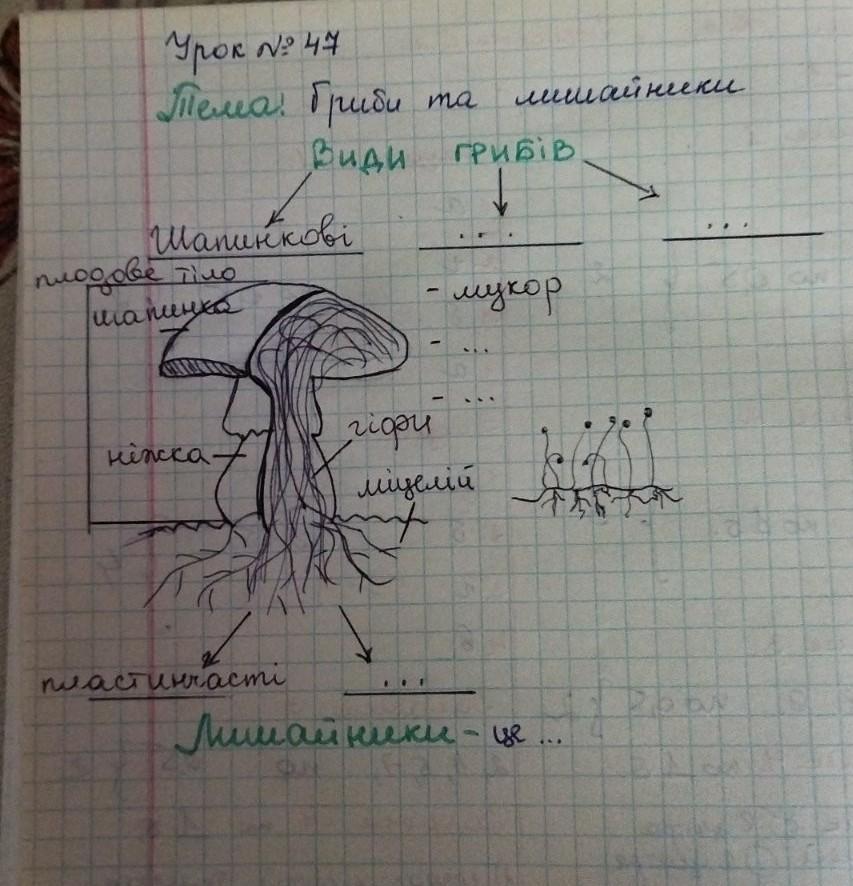 Урок № 47
Тема: Гриби та лишайники
Види грибів
Шапинкові ... ...
плодове тіло
шапинка
- мукор
- ...
- ...
гіфи
ніжка
міцелій
пластинчасті ...
Лишайники - це ...